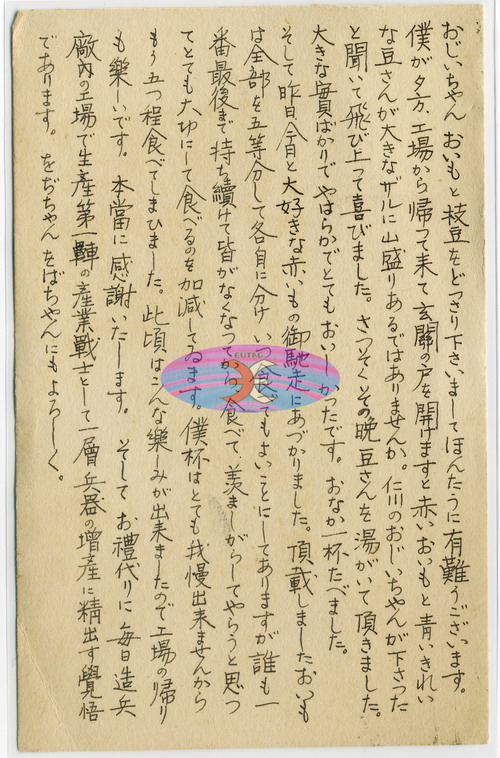 おじいちゃん おいもと枝豆をどっさり下さいましてほんたうに有難うございます。
僕が夕方、工場から帰って来て玄関の戸を開けますと赤いおいもと青いきれい
な豆さんが大きなザルに山盛りあるではありませんか。仁川のおじいちゃんが下さった
と聞いて飛び上って喜びました。さっそくその晩豆さんを湯がいて頂きました。
大きな實ばかりでやはらかでとてもおいしかったです。おなか一杯たべました。
そして昨日、今日と大好きな赤いもの御馳走にあづかりました。頂戴しましたおいも
は全部を五等分して各自に分け いつ食べてもよいことにしてありますが誰も一
番最後まで持ち續けて皆がなくなってから食べて、羨ましがらしてやらうと思っ
てとても大切にして食べるのを加減してゐます。僕杯はとても我慢出来ませんから
もう五つ程食べてしまひました。此頃はこんな樂しみが出来ましたので工場の帰り
も樂しいです。本當に感謝いたします。 そして お禮代りに毎日造兵
廠内の工場で生産第一陣の産業戰士として一層兵器の増産に精出す覺悟
であります。 をぢちゃんをばちゃんにもよろしく。
EUTAC